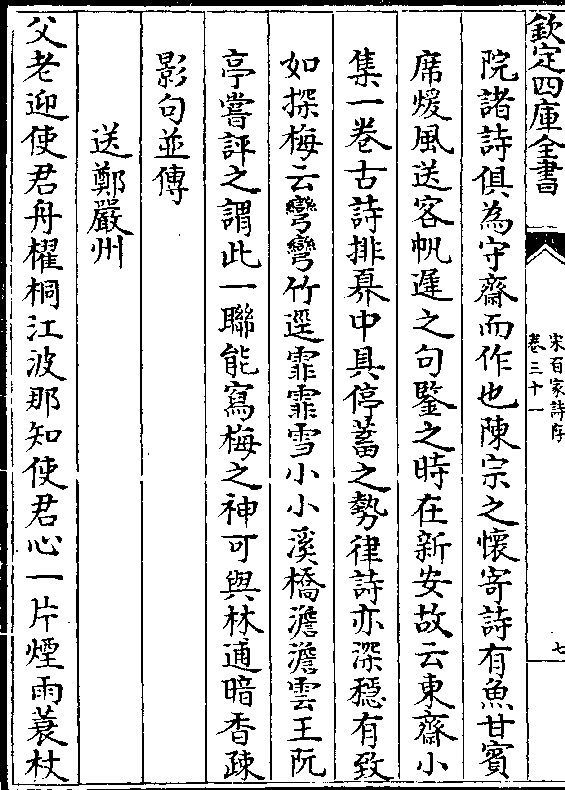 欽定四庫全書
宋百家詩存
卷三十一
七
院諸詩俱為守齋而作也陳宗之懷寄詩有魚甘賓
席煖風送客帆遲之句鑒之時在新安故云東齋小
集一卷古詩排奡中具停蓄之勢律詩亦深穩有致
如探梅云彎彎竹逕霏霏雪小小溪橋澹澹雲王阮
亭嘗評之謂此一聯能寫梅之神可與林逋暗香疎
影句並傳
送鄭嚴州
父老迎使君舟櫂桐江波那知使君心一片煙雨蓑杖